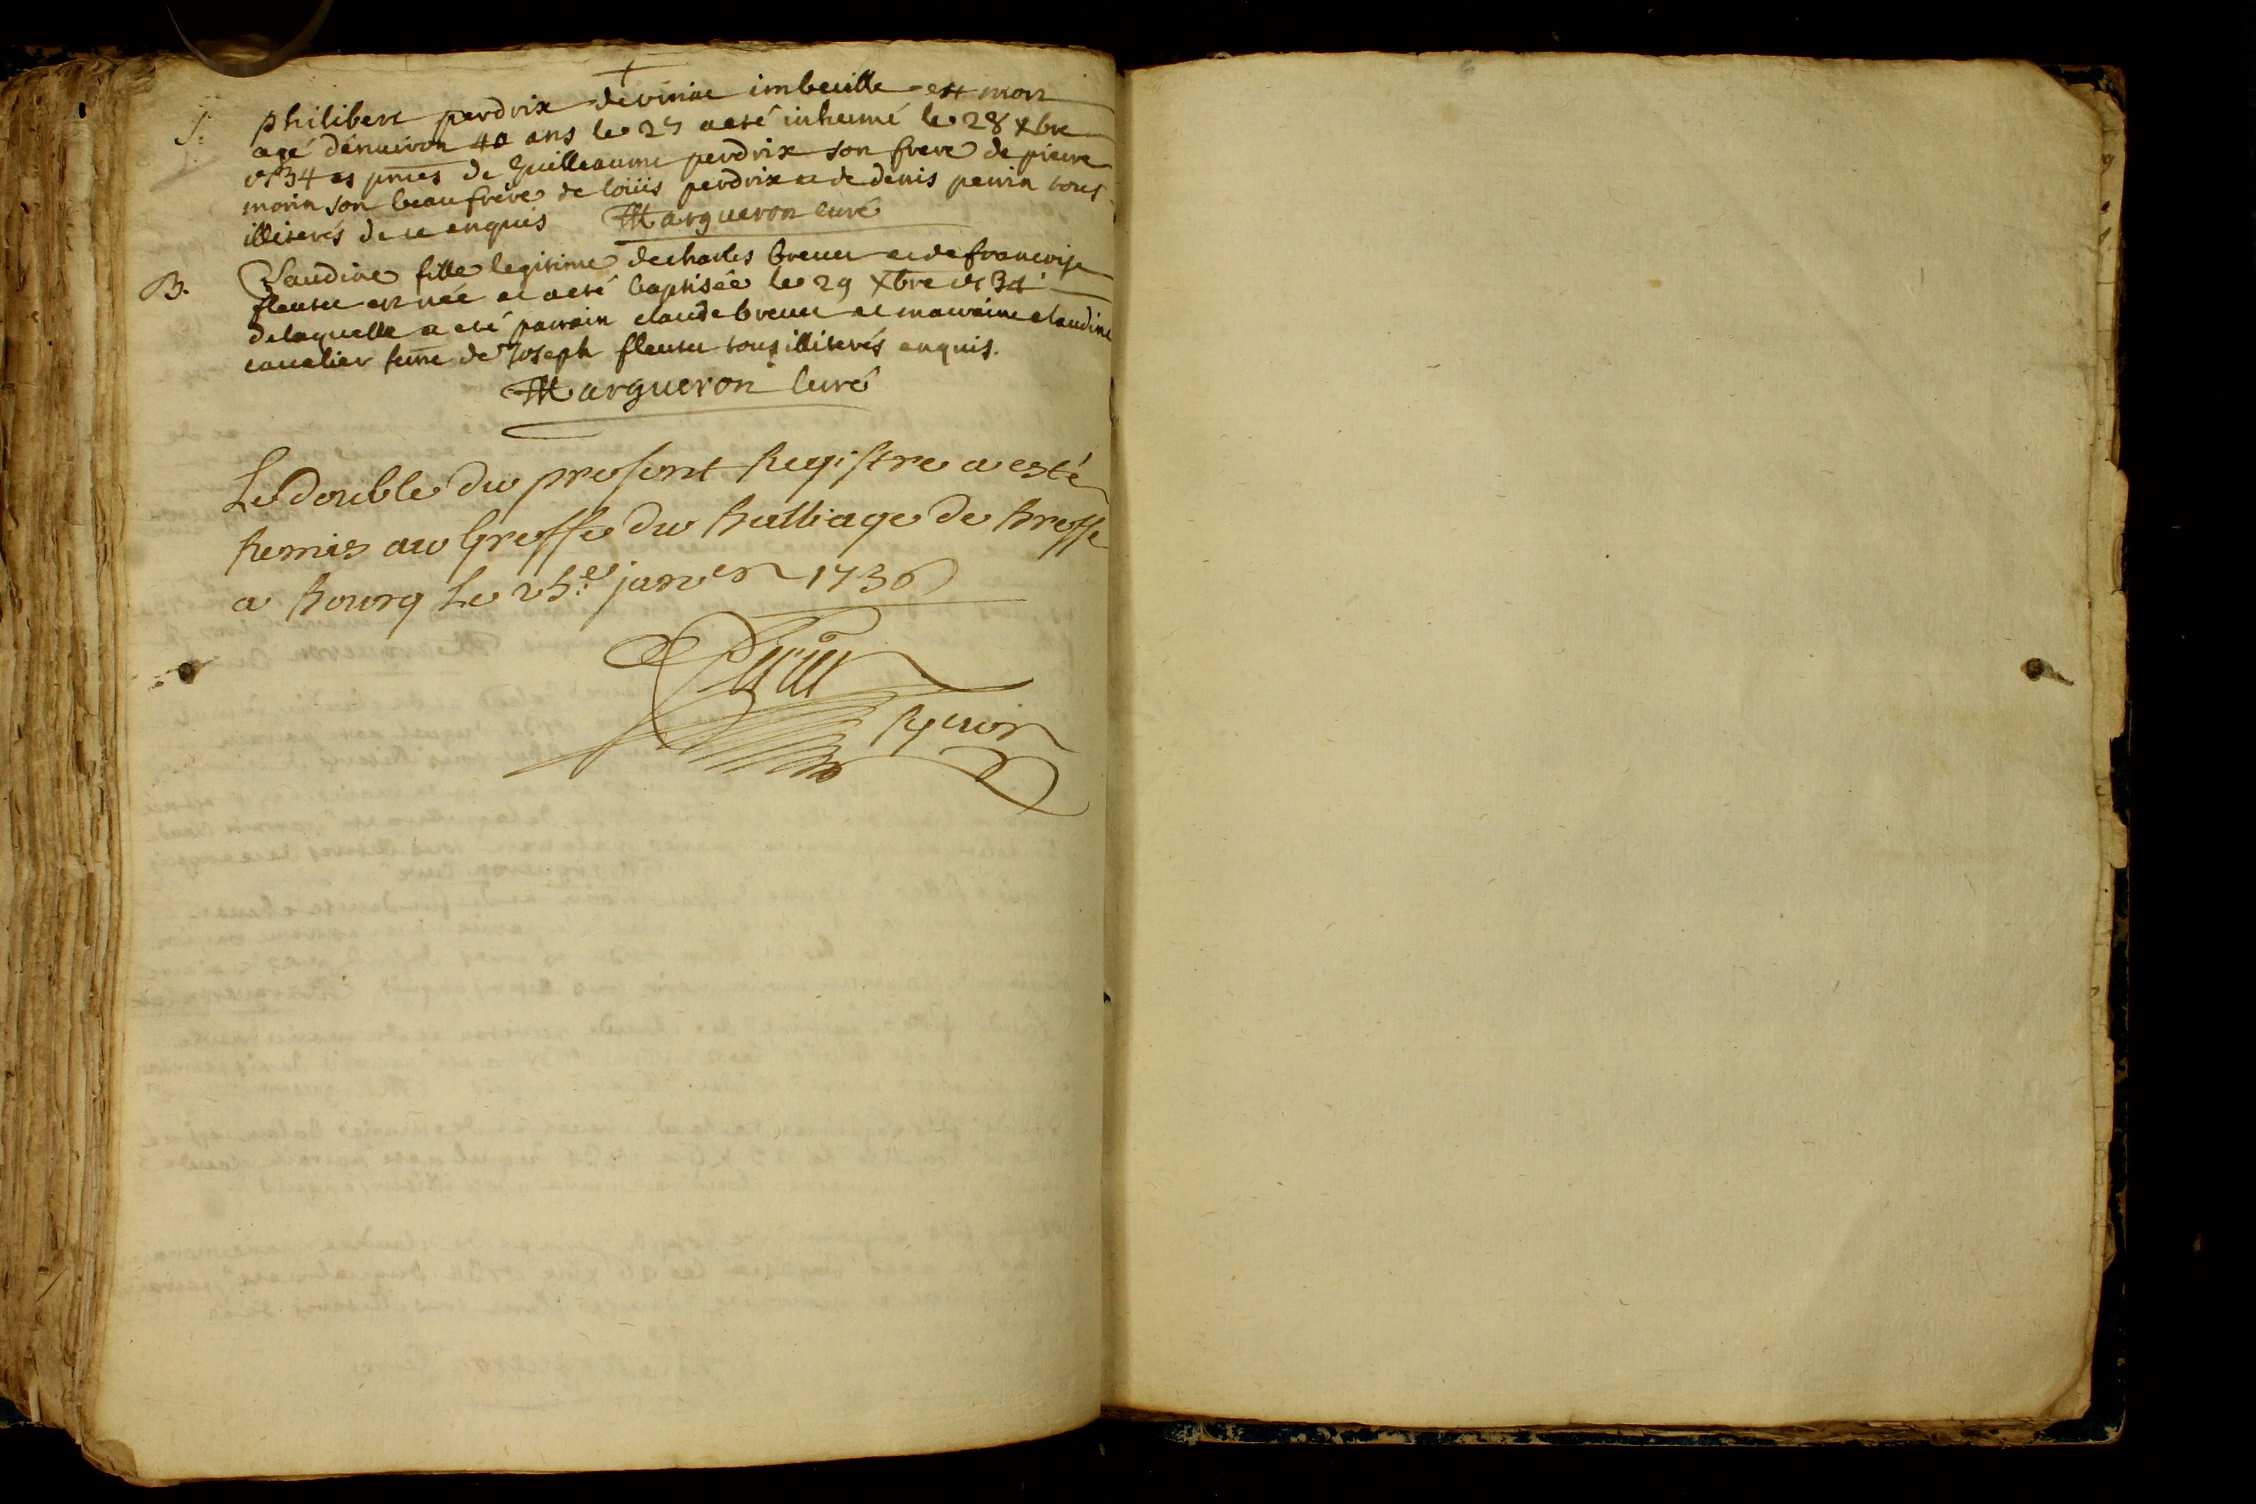 S. philibert perdrix de est mort
agé denuiron 40 ans le 27 a eté inhumé le 28 xbre
1734 es pñces de Guilleaume perdrix son frere de pierre
morin son beaufrere de loüis perdrix et de denis perrin tous
illiterés de ce enquis Margueron curé
B. Claudine fille legitime de charles breuet et de francoise
fleutet est née et a eté baptisée le 29 xbre 1734
delaquelle a eté parrain claude breuet et marraine claudine
caualier feme de Joseph fleutet tous illiterés enquis.
Margueron Curé
Le double du present Registre a esté
Remis au Greffe du Balliage de Bresse
a Bourg Le 25.e janver 1736